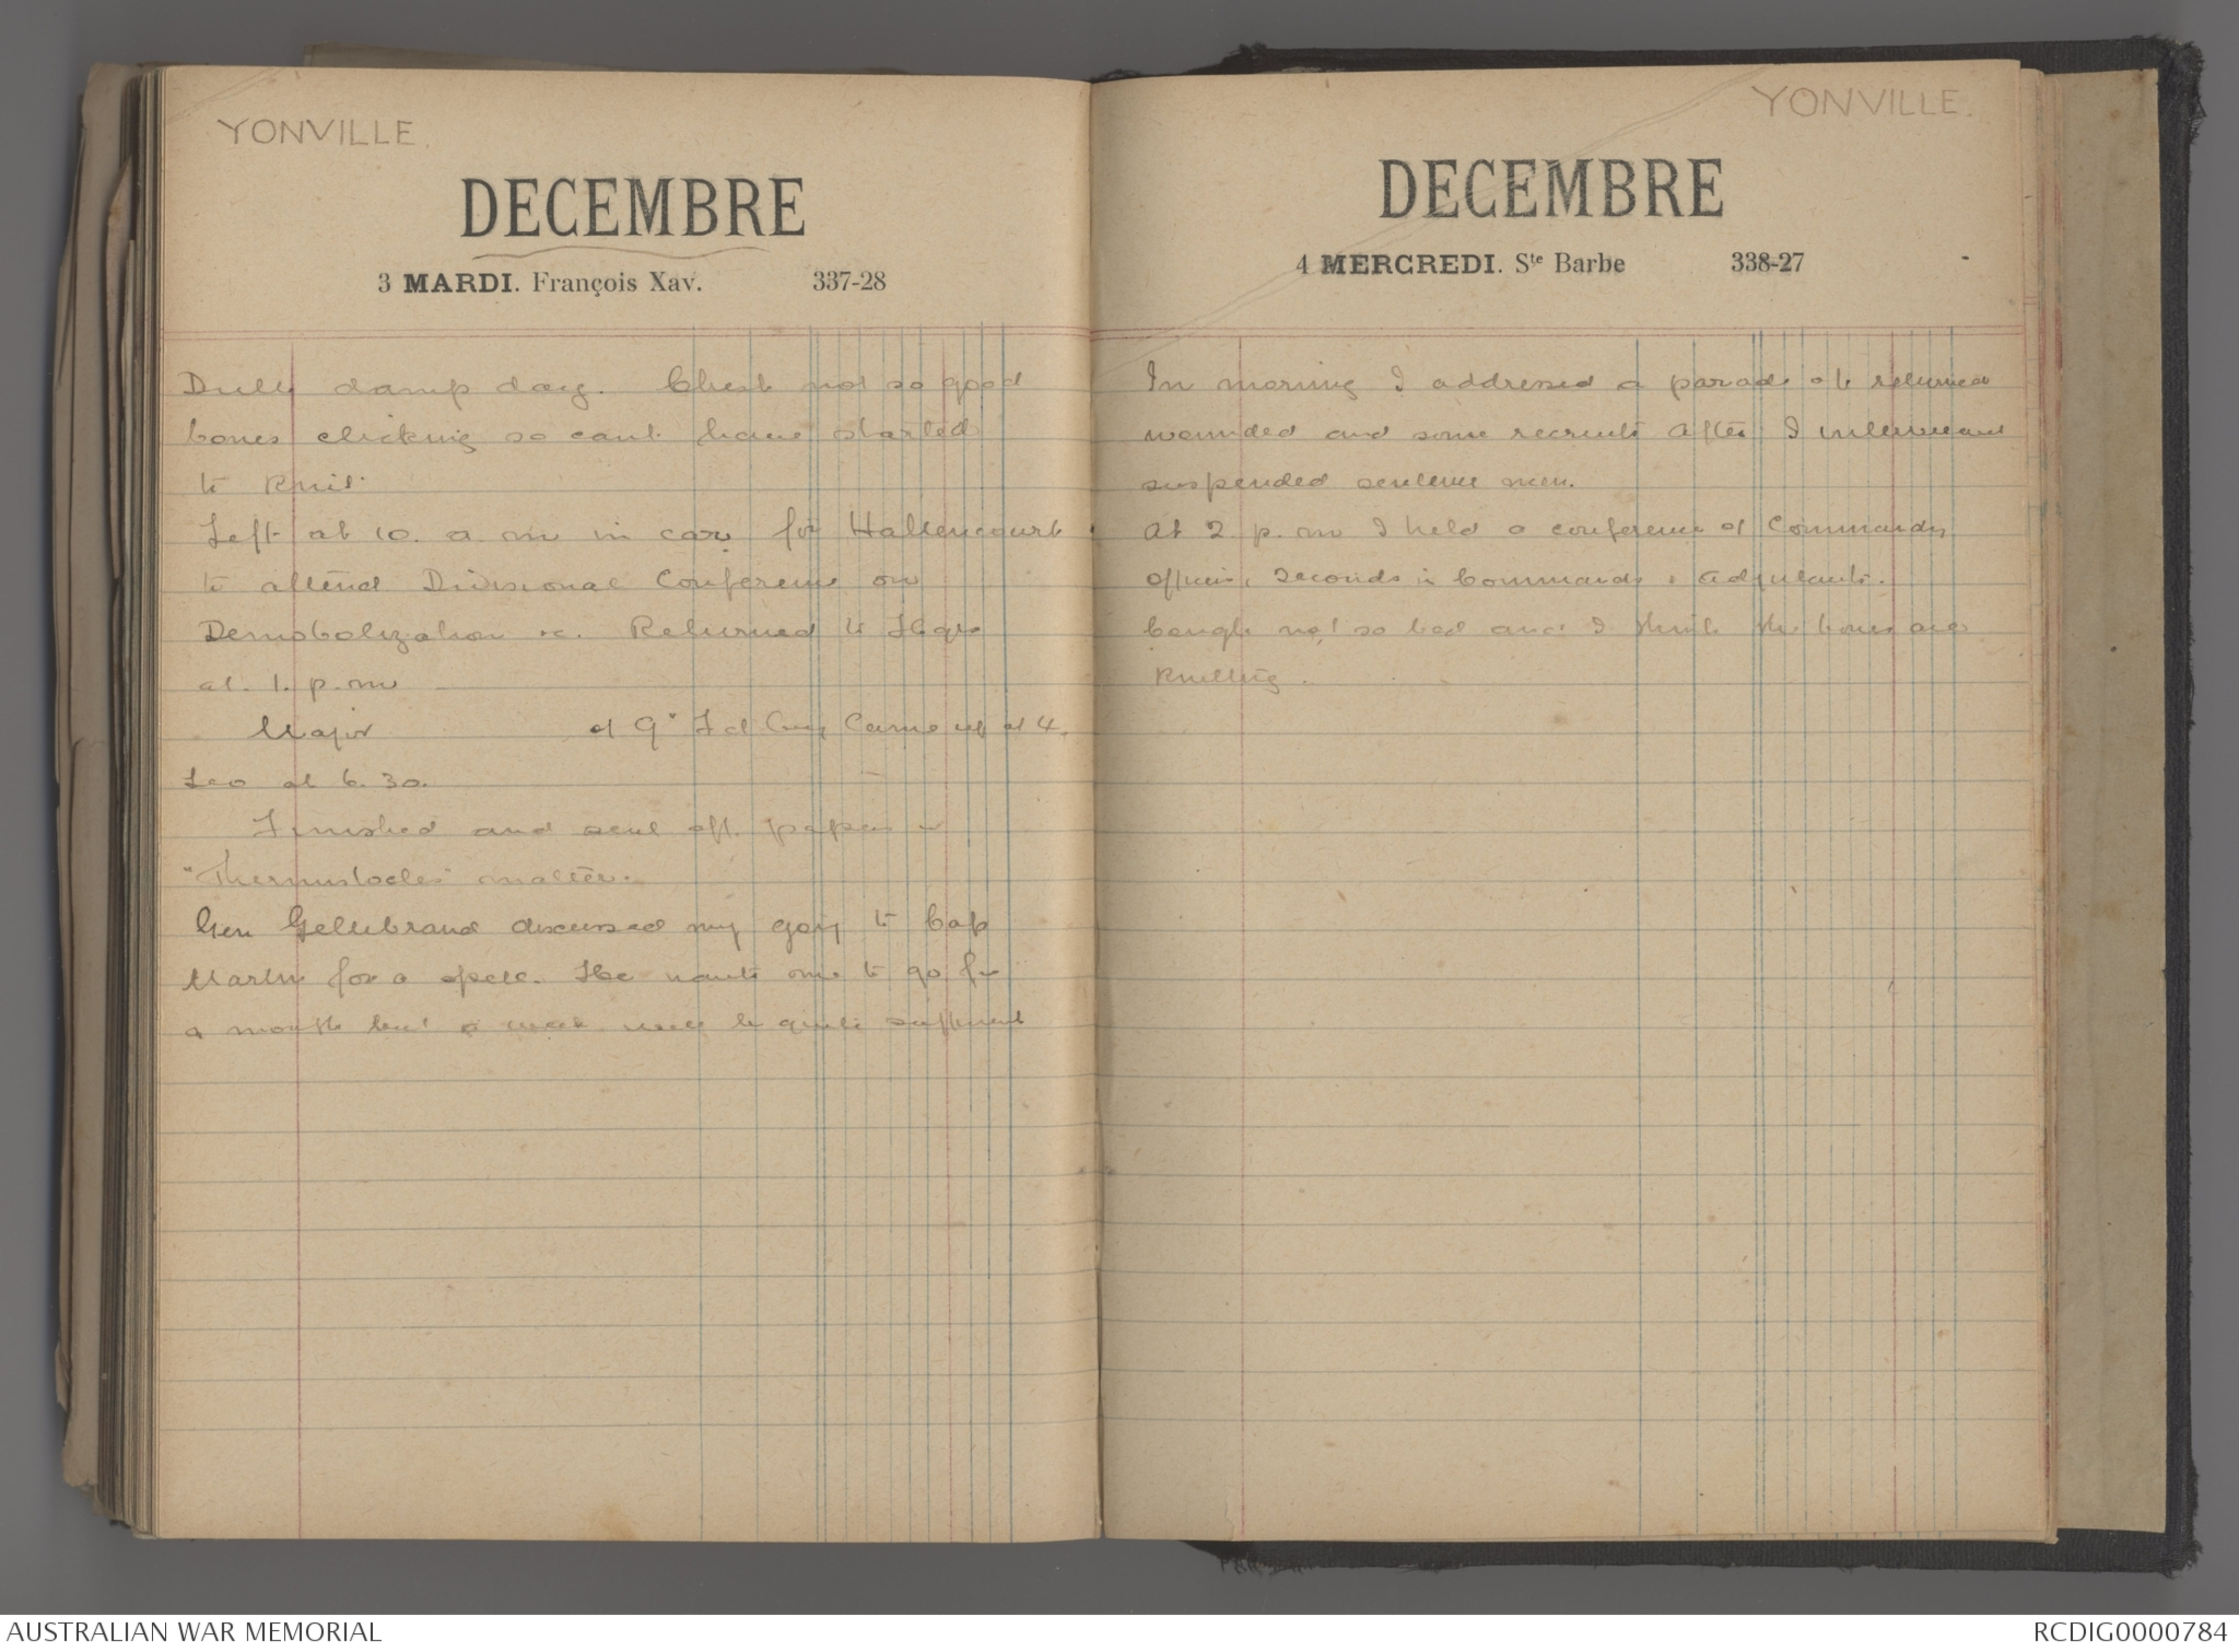 YONVILLE.
DECEMBRE
3 MARDI. François Xav. 337-28
Dull damp day. Chest not so good
bones clicking so cant have started
to knit.
Left at 10. a.m in car for Hallencourt
to attend Divisional Conference on
Demobolization &c. Returned to Hqrs
at. 1. p.m
Major of 9" Fd Coy Came up at 4.
Leo at 6.30.
Finished and sent off papers in
"Themistocles" matter.
Gen Gellibrand discussed my going to Cap
Martin for a spell. He wants me to go for
a month but a week will be quite sufficient
YONVILLE.
DECEMBRE
4 MERCREDI. Ste Barbe 338-27
In morning I addressed a parade of returned
wounded and some recruits After I interviewed
suspended sentence men.
At 2 p.m I held a conference of Commandg
Officers, Seconds in Commands & Adjutants.
Cough not so bad and I think the bones are
knitting.
AUSTRALIAN WAR MEMORIAL
RCDIG0000784